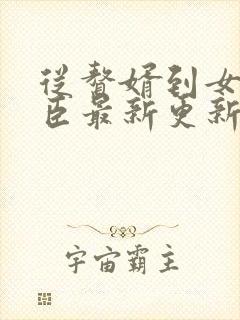 从赘婿到女
臣最新更新
宇宙霸主